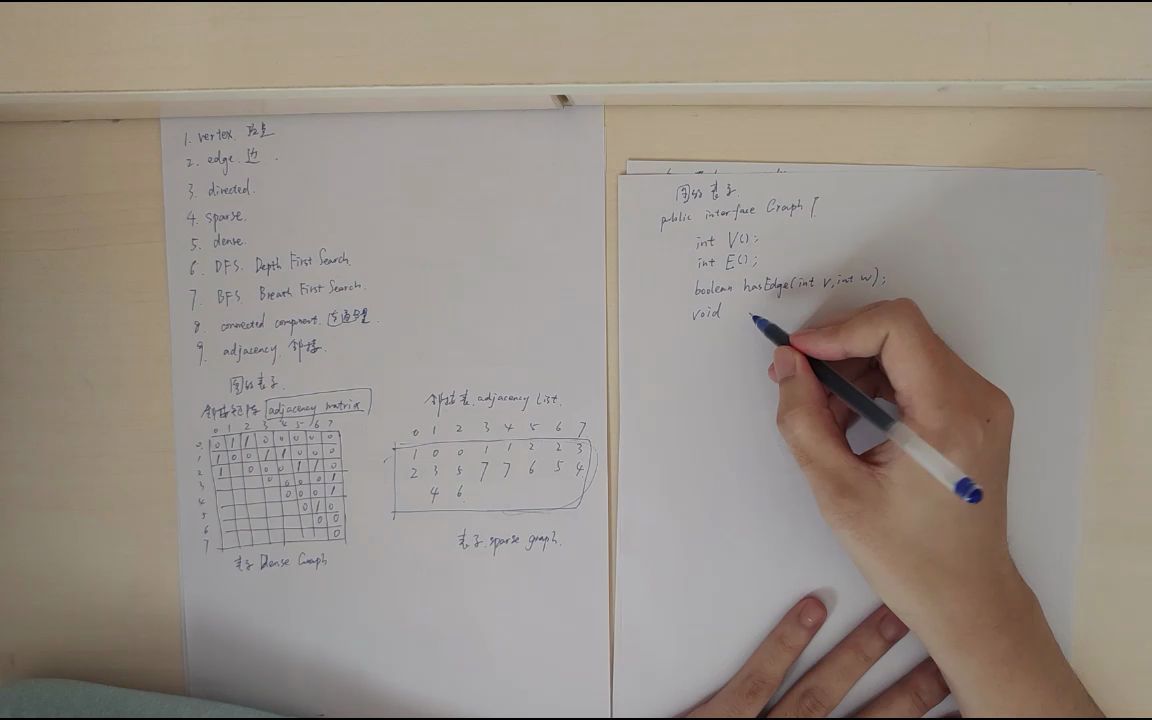 1. vertex. 顶点
2. edge. 边.
3. directed.
4. sparse.
5. dense.
6. DFS. Depth First Search.
7. BFS. Breath First Search.
8. connected component.
9. adjacency. 邻接.
图的表示.
邻接矩阵 adjacency matrix
0 1 2 3 4 5 6 7
0 0 1 1 0 0 0 0 0
1 1 0 0 1 1 0 0 0
2 1 0 0 0 1 1 0
3 0 0 0 0 1
4 0 0 0 1
5 0 1 0
6 0 0
7 0
表示 Dense Graph
邻接表. adjacency list.
0 1 2 3 4 5 6 7
1 0 0 1 1 2 2 3
2 3 5 7 7 6 5 4
4 6
表示 sparse graph.
图的表示.
public interface Graph {
int V();
int E();
boolean hasEdge(int v, int w);
void